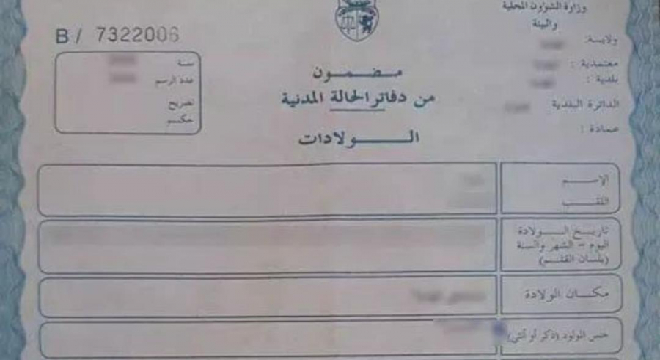 وزارة الشؤون المحلية
والبيئة
B/ 7322006
ولاية:
معتمدية:
بلدية:
الدائرة البلدية
عمادة:
سنة
عدد الرسم
تصريح
حكم
مضمون
من دفاتر الحالة المدنية
الولادات
الإسم
اللقب
تاريخ الولادة
اليوم - الشهر والسنة
(بلسان القلم)
مكان الولادة
جنس المولود (ذكر أو أنثى)